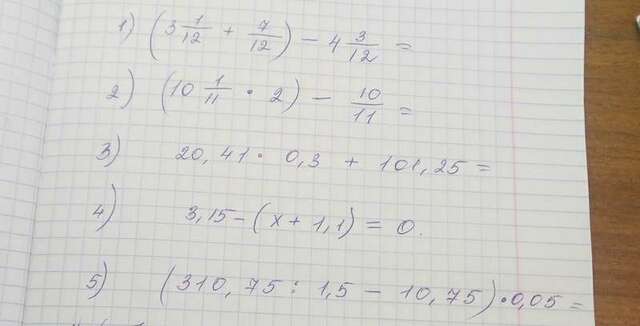 1) (3 1/12 + 7/12) - 4 3/12 =
2) (10 1/11 · 2) - 10/11 =
3) 20,41 · 0,3 + 101,25 =
4) 3,15 - (x + 1,1) = 0.
5) (310,75 : 1,5 - 10,75) · 0,05 =